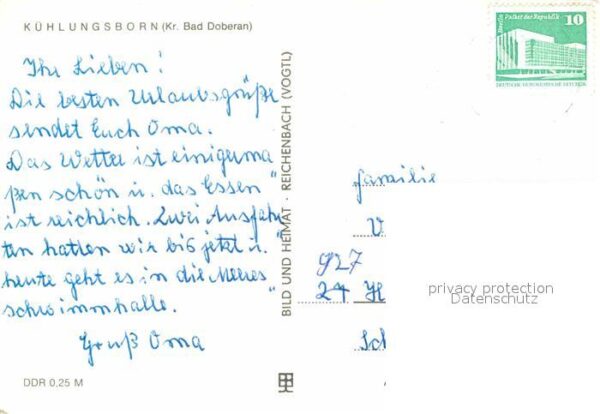 KÜHLUNGSBORN (Kr. Bad Doberan)
Ihr Lieben!
Die besten Urlaubsgrüße
sendet Euch Oma.
Das Wetter ist einigerma
ßen schön u. das Essen
ist reichlich. Zwei Ausfahr
ten hatten wir bis jetzt u.
heute geht es in die Meeres
schwimmhalle.
Gruß Oma
DDR 0,25 M
BILD UND HEIMAT · REICHENBACH (VOGTL)
Berlin Palast der Republik
10
DEUTSCHE DEMOKRATISCHE REPUBLIK
Familie
V
927
24 H
Sch
privacy protection
Datenschutz